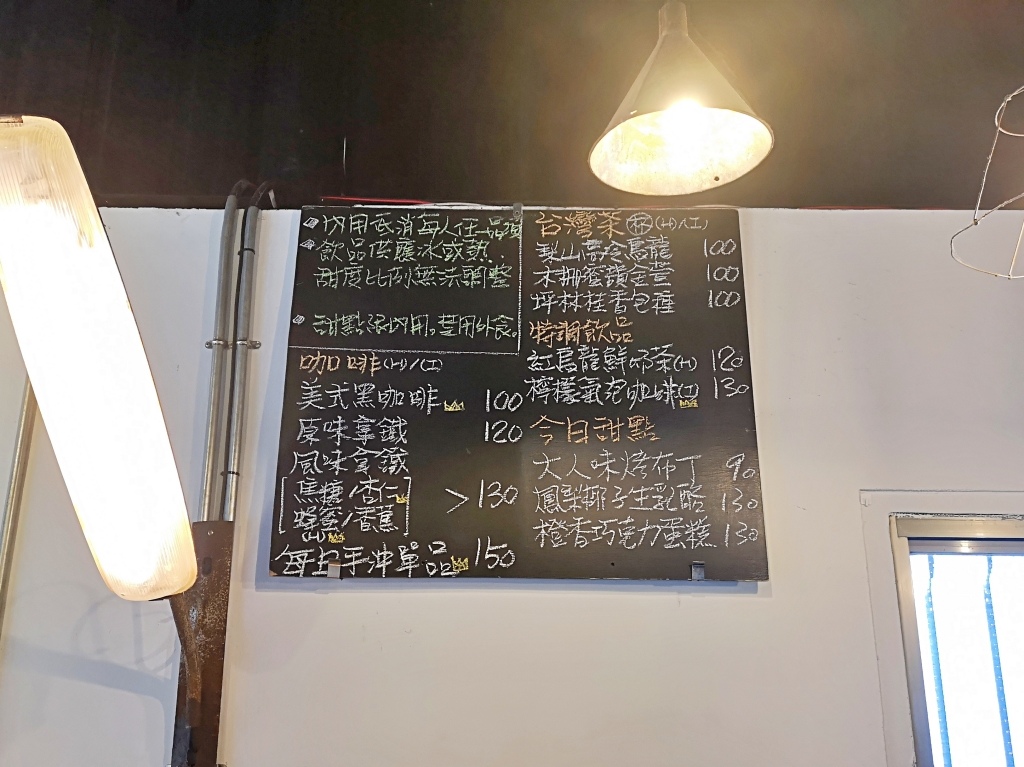 內用低消每人任一品項
飲品供應冰或熱.
甜度比例無法調整
甜點限內用。禁用外食。
咖啡(H)/(I)
美式黑咖啡 100
原味拿鐵 120
風味拿鐵
焦糖/杏仁
蜂蜜/香蕉 >130
每日手沖單品 150
台灣茶 杯 (H)/(I)
梨山高冷烏龍 100
木柵蜜韻金萱 100
坪林桂香包種 100
特調飲品
紅烏龍鮮奶茶(H) 120
檸檬氣泡咖啡(I) 130
今日甜點
大人味烤布丁 90
鳳梨椰子生乳酪 130
橙香巧克力蛋糕 130